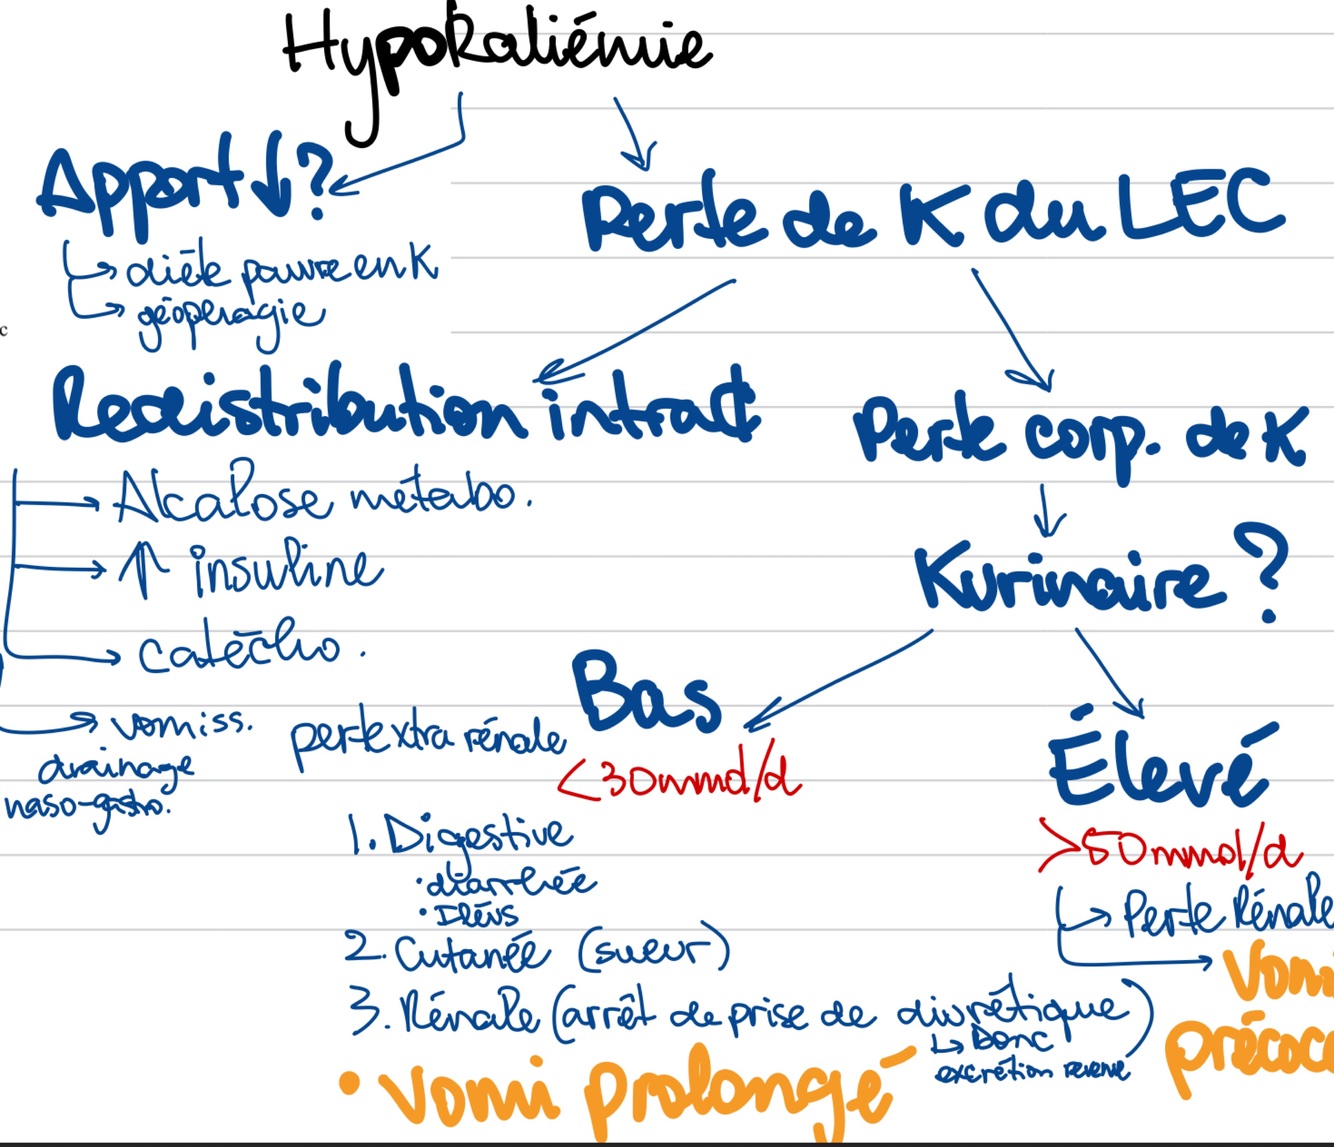 Hypokaliémie
Apport ↓?
↳ diète pauvre en K
↳ géophagie
c
Perte de K du LEC
Redistribution intra¢
→ Alcalose métabo.
→ ↑ insuline
→ catécho.
→ vomiss.
drainage
naso-gastro.
Perte corp. de K
Kurinaire ?
Bas
<30mmol/d
perte extra rénale
1. Digestive
• diarrhée
• Iléus
2. Cutanée (sueur)
3. Rénale (arrêt de prise de diurétique)
↳ Donc
excrétion
• Vomi prolongé
Élevé
>50mmol/d
→ Perte Rénale
→ Vomi
précoc